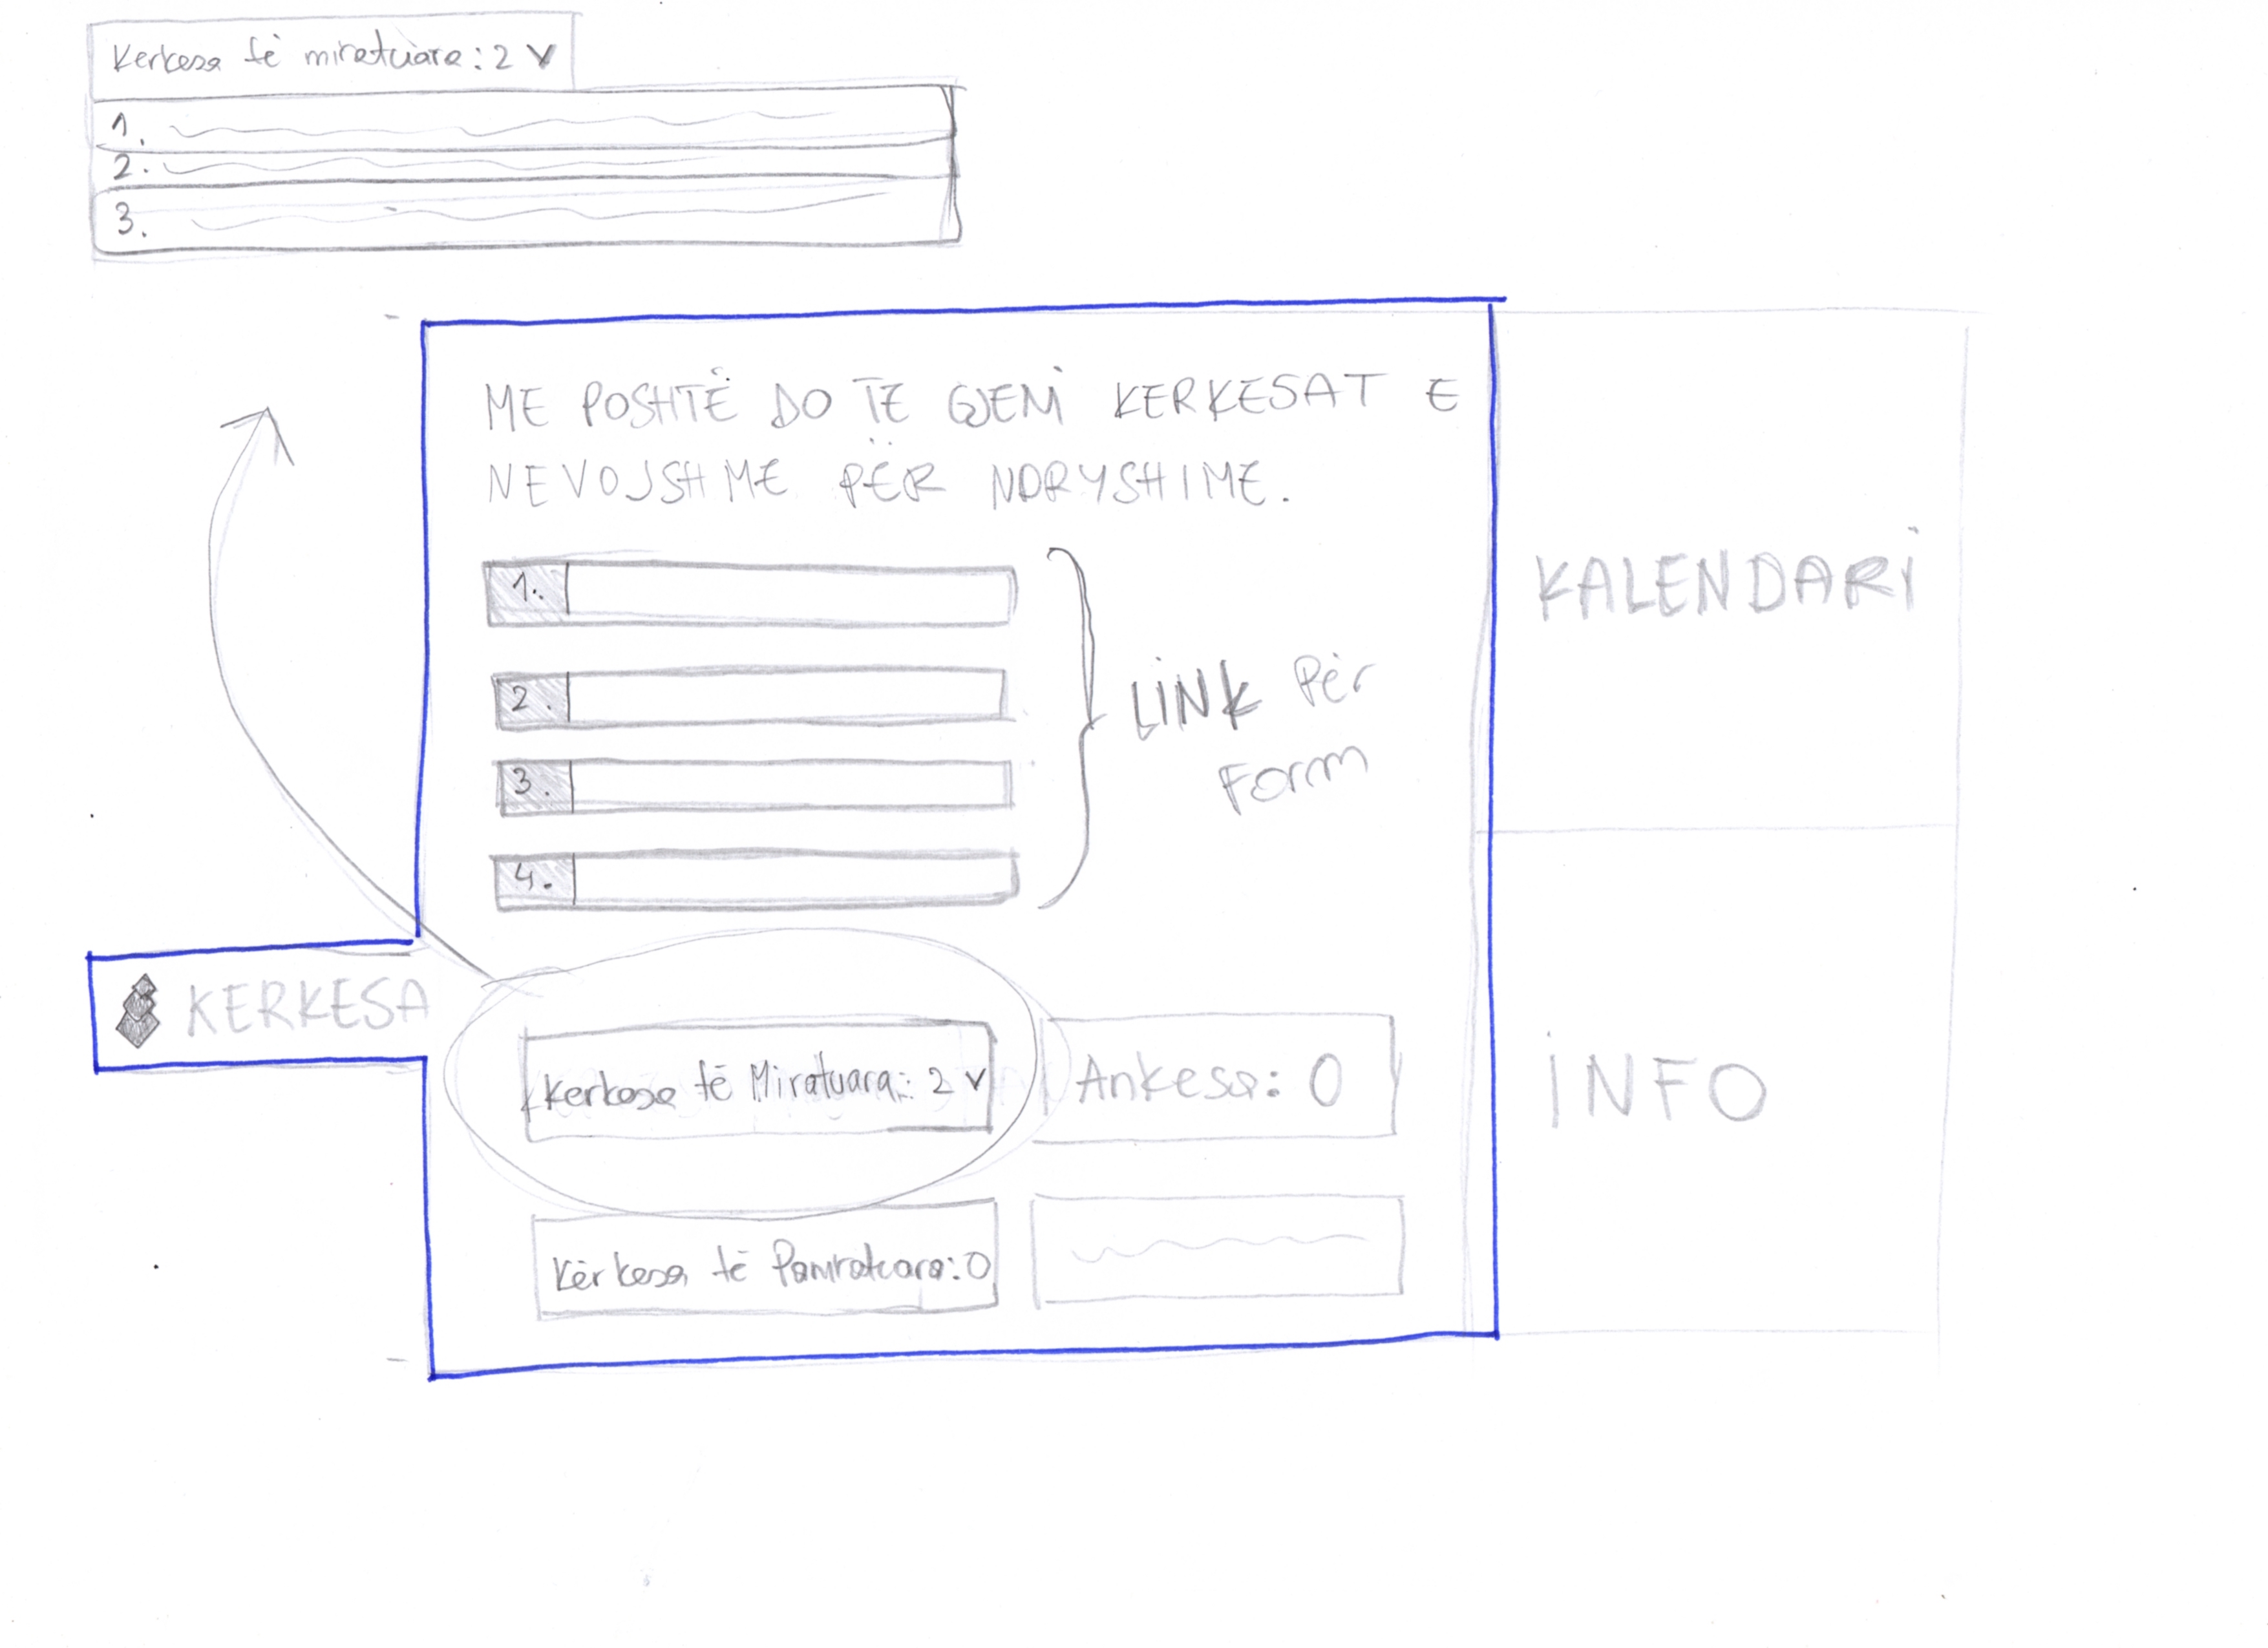 Kerkesa të miratuara: 2 v
1.
2.
3.
ME POSHTË DO TË GJENI KERKESAT E
NEVOJSHME PËR NDRYSHIME.
1.
2.
3.
4.
LINK Për
Form
KALENDARI
KERKESA
Kerkesa të Miratuara: 2 v
Ankesa: 0
Kërkesa të Pamiratuara: 0
INFO